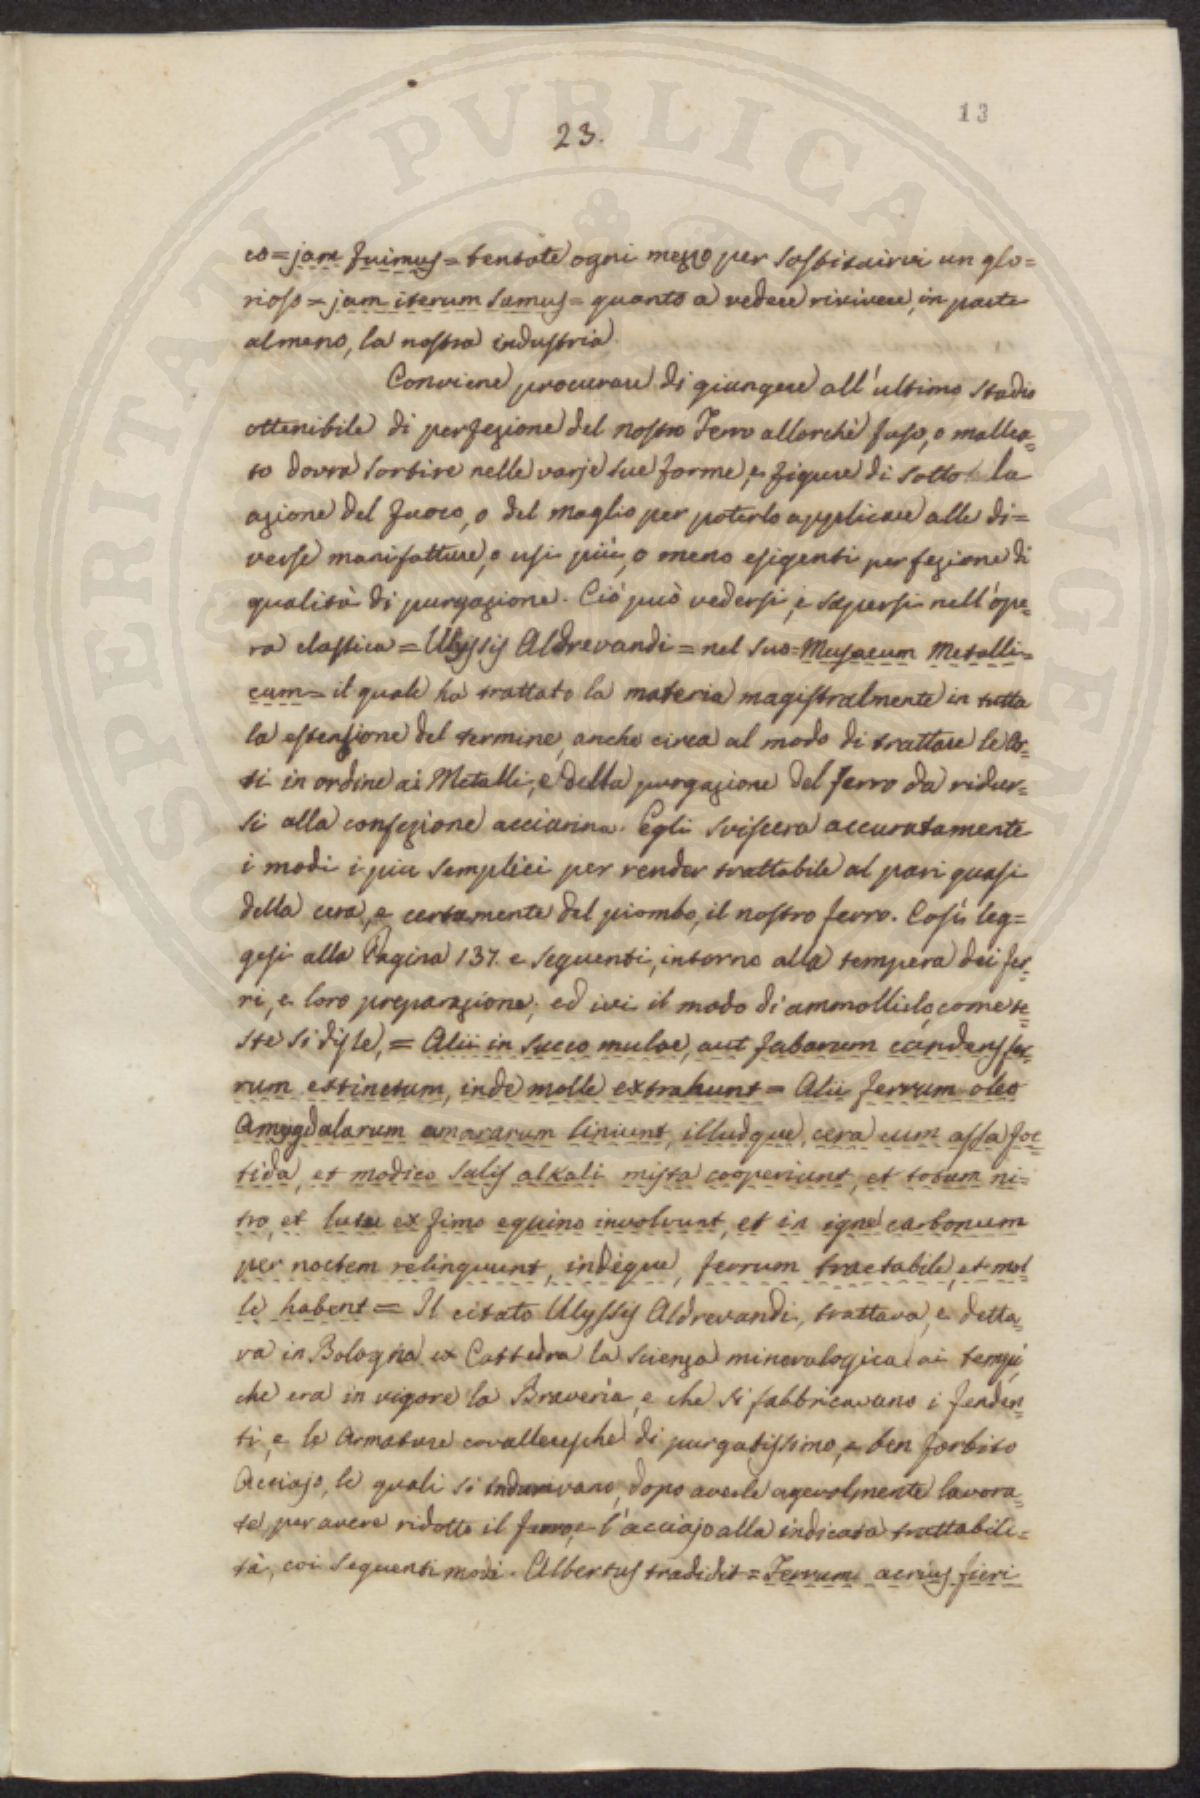 13
23.
co = jam fuimus = tentate ogni mezzo per sostituirvi un glo=
rioso = jam iterum sumus = quanto a vedere rivivere, in parte
almeno, la nostra industria.
Conviene procurare di giungere all'ultimo stadio
ottenibile di perfezione del nostro Ferro allorchè fuso, o mallea=
to dovrà sortire nelle varje sue forme, e figure di sotto la
azione del fuoco, o del maglio per poterlo applicare alle di=
verse manifatture, o usi più, o meno esigenti perfezione di
qualità di purgazione. Ciò può vedersi, e sapersi nell'ope=
ra classica = Ulyssis Aldrevandi = nel suo = Musaeum Metalli=
cum = il quale ha trattato la materia magistralmente in tutta
la estensione del termine, anche circa al modo di trattare le Co=
ti in ordine ai Metalli, e della purgazione del ferro da ridur=
si alla confezione acciarina. Egli sviscera accuratamente
i modi i piu semplici per render trattabile al pari quasi
della cera, e certamente del piombo, il nostro ferro. Così leg=
gesi alla Pagina 137. e sequenti, intorno alla tempera dei fer=
ri, e loro preparazione; ed ivi il modo di ammollirlo, come te=
ste si disse, = Alii in succo mulae, aut fabarum candens fer=
rum extinctum, inde molle extrahunt = Alii ferrum oleo
Amygdalarum amararum liniunt, illudque, cera cum assa foe=
tida, et modico salis alkali mista cooperiunt, et totum ni=
tro, et luteu ex fimo equino involvunt, et in igne carbonum
per noctem relinquunt, indeque, ferrum tractabile, et mol=
le habent = Il citato Ulyssis Aldrevandi, trattava, e detta=
va in Bologna ex Cattedra la scienza mineralogica ai tempi
che era in vigore la Braveria, e che si fabbricavano i fenden=
ti, e le Armature cavalleresche di purgatissimo, e ben forbito
Acciajo, le quali si indurivano, dopo averle agevolmente lavora=
te, per avere ridotto il ferro, e l'acciajo alla indicata trattabili=
tà, coi sequenti modi. Albertus tradidit = Ferrum acrius fieri
SPERITATI PVBLICAE AVGEN